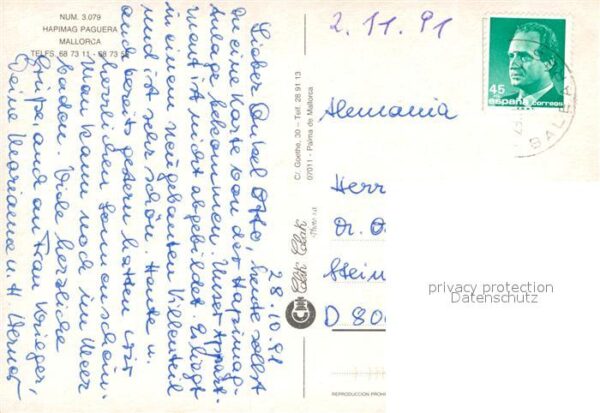 NUM. 3.079
HAPIMAG PAGUERA
MALLORCA
TELFS. 68 73 11 - 68 73 5
28.10.91
Lieber Onkel Otto, heute sollst
Du eine Karte von der Hapimag-
Anlage bekommen. Unser Appart-
ment ist nicht abgebildet. Es liegt
in einem neugebauten Villenteil
und ist sehr schön. Heute u.
auch bereits gestern hatten wir
herrlichen Sonnenschein.
Man kann noch im Meer
baden. Viele herzliche
Grüße, auch an Frau Krieger,
Deine Marianne u. H. Werner
C/. Goethe, 30 – Telf. 28 91 13
07011 - Palma de Mallorca
Clik Clak
2.11.91
45
españa correos
BALEA
Alemania
Herr
Dr. O
Stein
D 80
privacy protection
Datenschutz
REPRODUCCION PROHI